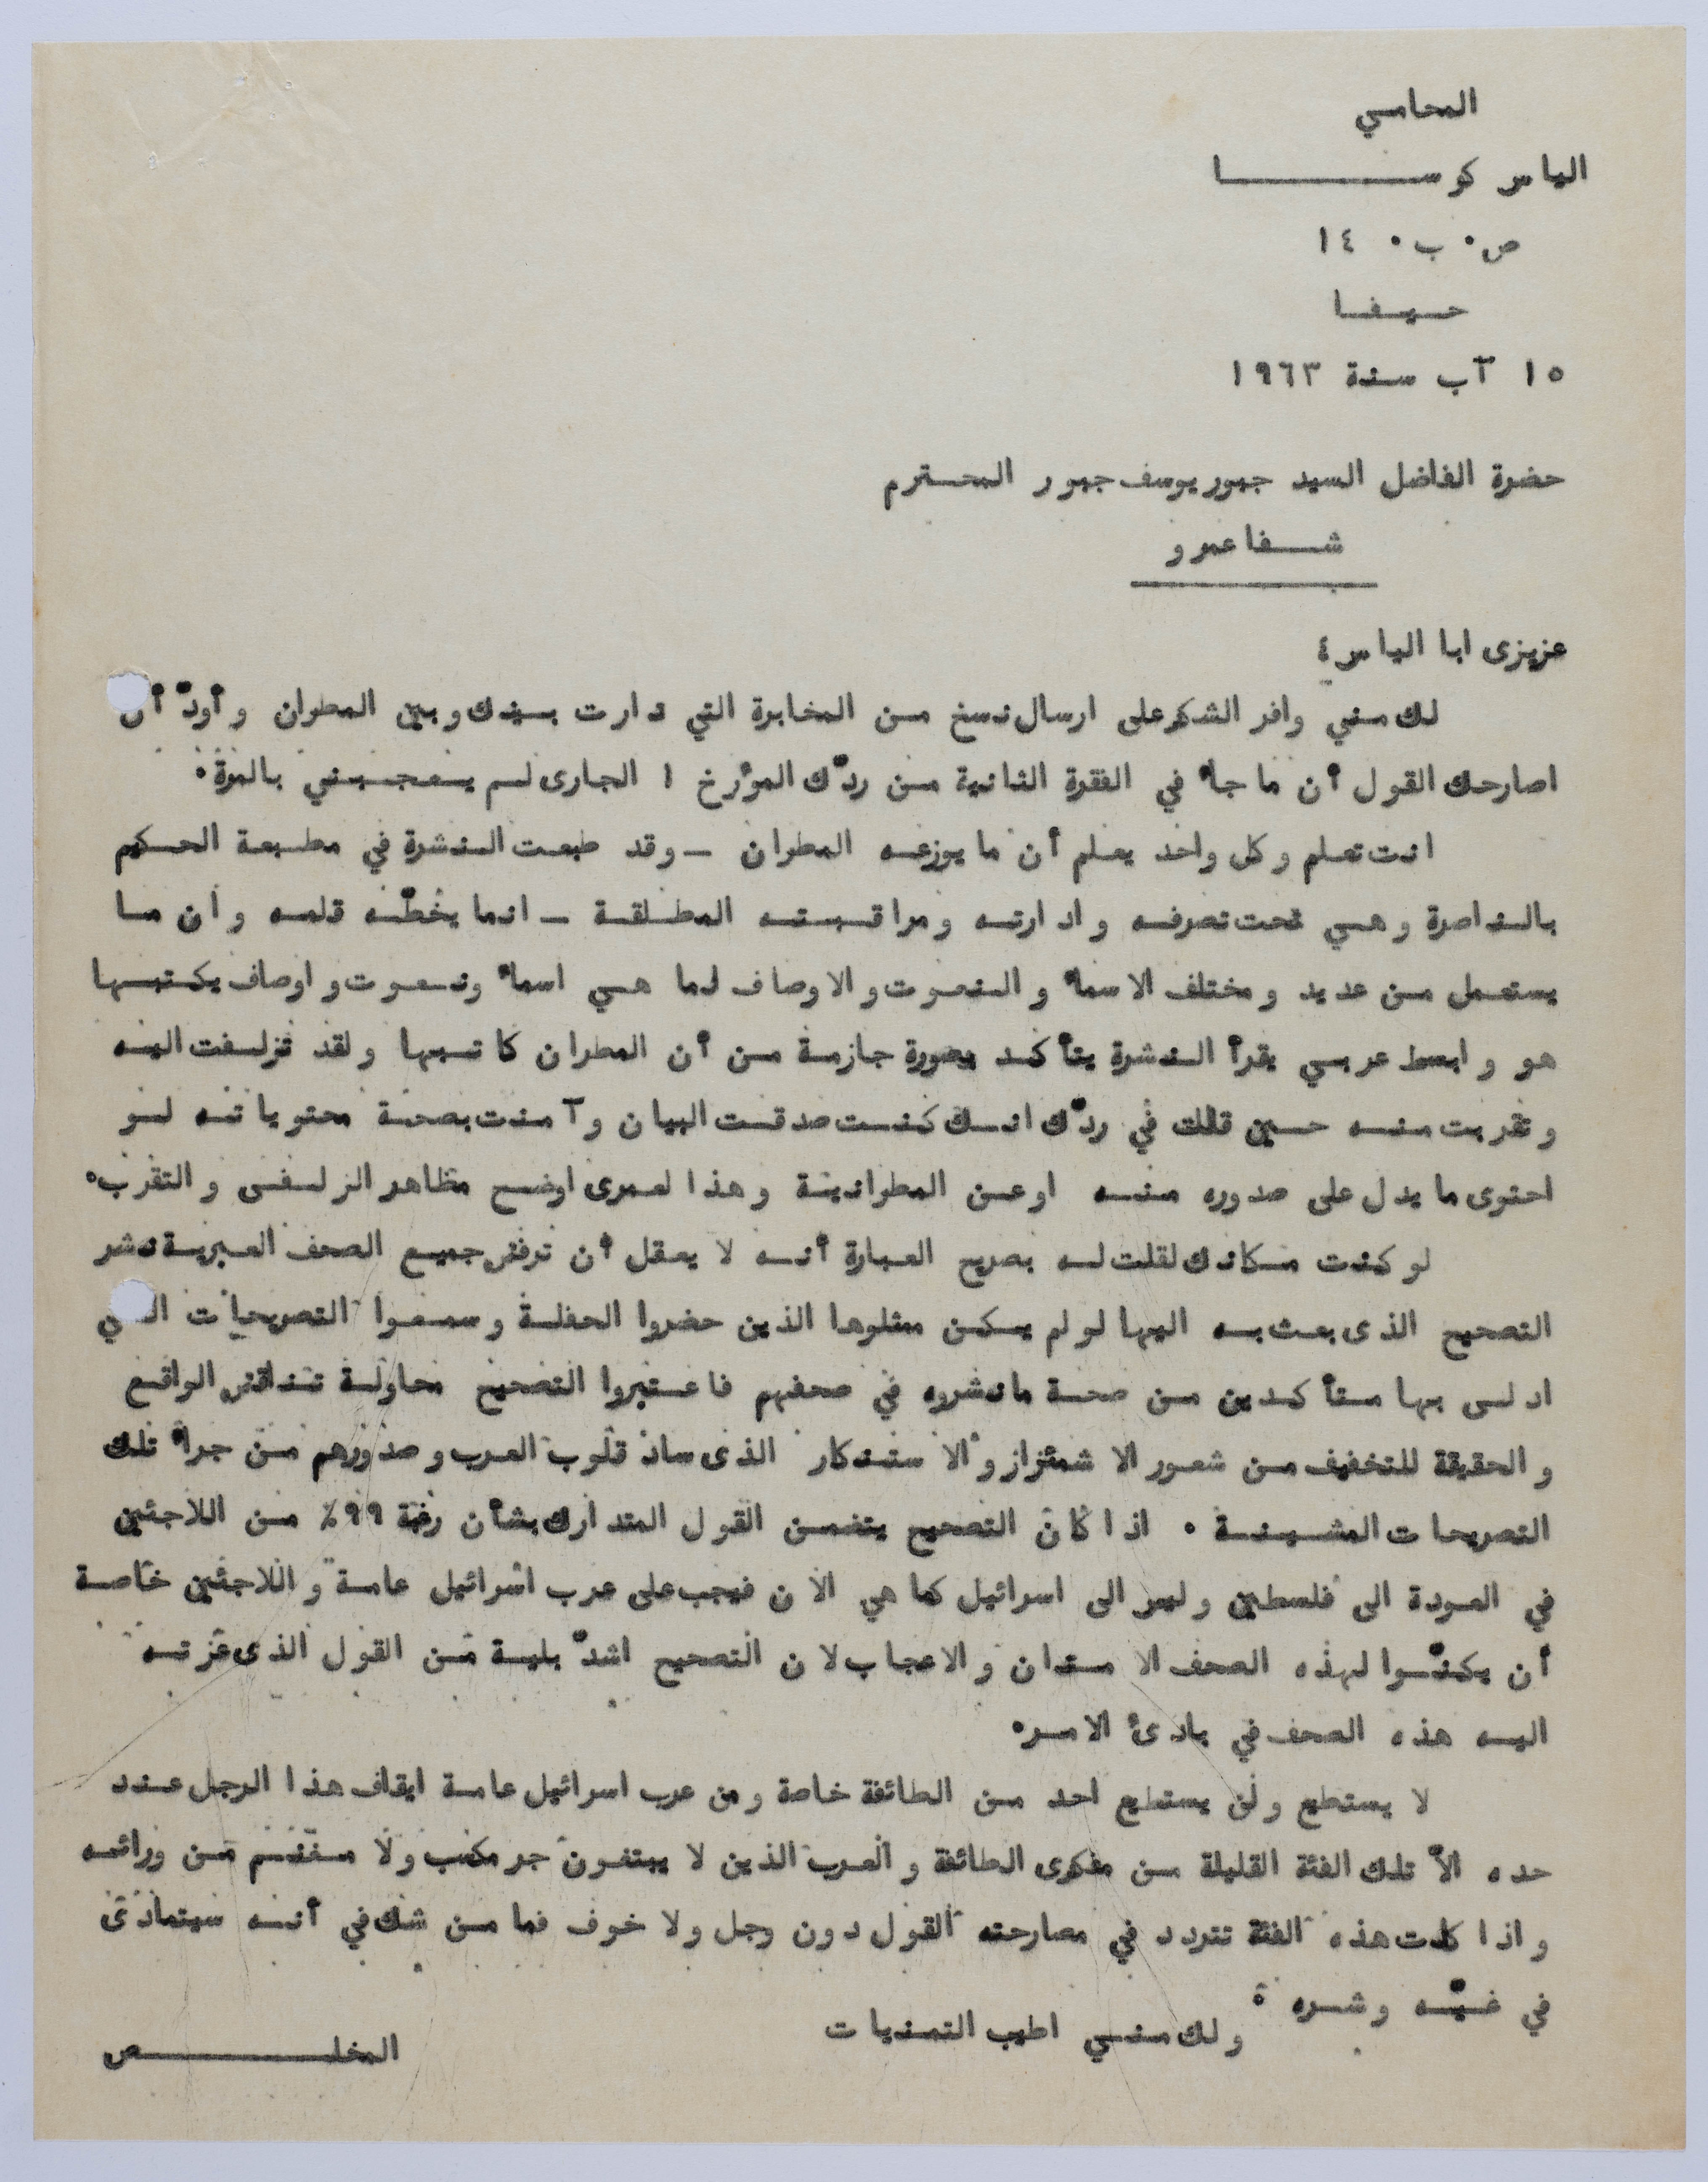 المحامي
الياس كوســـــــــا
ص٠ ب٠ ١٤
حـيـفـا
١٥ آب سنة ١٩٦٣
حضرة الفاضل السيد جبور يوسف جبور المحـترم
شـــفا عمرو
عزيزى ابا الياس،
لك مـني وافر الشكر على ارسال نسخ مـن المخابرة التي دارت بـينك وبين المطران وأودّ أن
اصارحك القول أن ما جاء في الفقرة الثانية مـن ردّك المؤرخ ١ الجارى لـم يـعـجـبـني بالمرّة٠
انت تعـلم وكل واحد يعـلم أن ما يوزعـه المطران ــ وقد طبعـت الـنشرة في مطـبعـة الحـكيم
بالـناصرة وهـي تحت تصرفـه وادارتـه ومراقـبـتـه المطـلقـة ــ انما يخُطّـه قلمـه وأن مـا
يستعـمل مـن عديد ومختلف الاسماء والـنعـوت والاوصاف لما هـي اسماء ونـعـوت واوصاف يكـتبـها
هو وابسط عربـي يقرأ الـنشرة يتأكـد بصورة جازمـة مـن أن المطران كاتـبها ولقد تزلـفت اليـه
وتقربت منـه حـين قلت في ردّك انـك كـنـت صدقـت البيان وآمـنت بصحـة محتوياتـه لـو
احتوى ما يدل على صدوره مـنـه او عـن المطرانيـة وهذا لعـمرى اوضـح مظاهر الزلـفـى والتقرب٠
لو كـنت مـكانك لقلت لـه بصريح العـبارة أنـه لا يعـقل أن ترفض جميـع الصحف العـبريـة نشر
التصحيح الذى بعـث بـه اليها لو لم يـكـن ممثلوها الذين حضروا الحفلـة وسمـعـوا التصريحات الـتي
ادلـى بها مـتأكـدين مـن صحـة ما نشروه في صحفهم فاعـتبروا التصحيح محاولـة تـناقض الواقـع
والحقيقة للتخفيف مـن شعـور الاشمئزاز والاستـنكار الذى ساد قلوب العـرب وصدورهم مـن جراء تلك
التصريحات المشـيـنـة ٠ اذا كان التصحيح يتضمـن القول المتدارك بشأن رغبة ٩٩٪ مـن اللاجئين
في العـودة الى فلسطين وليس الى اسرائيل كما هي الان فيجب على عرب اسرائيل عامـة واللاجئين خاصـة
أن يكـنّـوا لهذه الصحف الامـتنان والاعجاب لان التصحيح اشدّ بليـة مـن القول الذى عزتـه
اليـه هذه الصحف في بادئ الامـر٠
لا يستطيع ولن يستطيع احد مـن الطائفة خاصة ومن عرب اسرائيل عامـة ايقاف هذا الرجل عـند
حده الاّ تلك الفئة القليلة مـن مفكرى الطائفة والعـرب الذين لا يبتغـون جر مكسب ولا مـغـنـم مـن ورائـه
واذا كانت هذه الفئة تتردد في مصارحته القول دون وجل ولا خوف فما مـن شك في أنـه سيتمادى
في غـيّـه وشـره ٠
ولك مـنـي اطيب التمـنيات
المخلـــــــــص